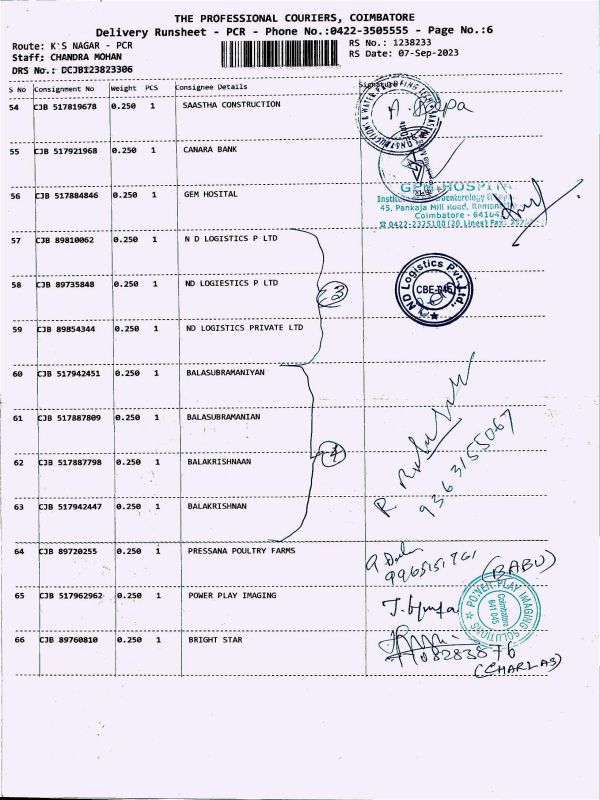 THE PROFESSIONAL COURIERS, COIMBATORE
Delivery Runsheet - PCR - Phone No.:0422-3505555 - Page No.:6
Route: K S NAGAR - PCR RS No.: 1238233
Staff: CHANDRA MOHAN RS Date: 07-Sep-2023
DRS No.: DCJB123823306
S No Consignment No Weight PCS Consignee Details
54 CJB 517819678 0.250 1 SAASTHA CONSTRUCTION
55 CJB 517921968 0.250 1 CANARA BANK
56 CJB 517884846 0.250 1 GEM HOSITAL
GEM HOSPITAL
45, Pankaja Mill Road,
Coimbatore - 64104
0422-2325100 (20 Lines) Fax:
57 CJB 89810062 0.250 1 N D LOGISTICS P LTD
58 CJB 89735848 0.250 1 ND LOGIESTICS P LTD
3
ND Logistics Pvt. Ltd.
CBE-045
59 CJB 89854344 0.250 1 ND LOGISTICS PRIVATE LTD
60 CJB 517942451 0.250 1 BALASUBRAMANIYAN
61 CJB 517887809 0.250 1 BALASUBRAMANIAN
62 CJB 517887798 0.250 1 BALAKRISHNAAN
4
9363155067
63 CJB 517942447 0.250 1 BALAKRISHNAN
64 CJB 89720255 0.250 1 PRESSANA POULTRY FARMS
(BABU)
65 CJB 517962962 0.250 1 POWER PLAY IMAGING
POWER PLAY IMAGING SOLUTIONS
Coimbatore
641 045
66 CJB 89760810 0.250 1 BRIGHT STAR
(CHARLAS)